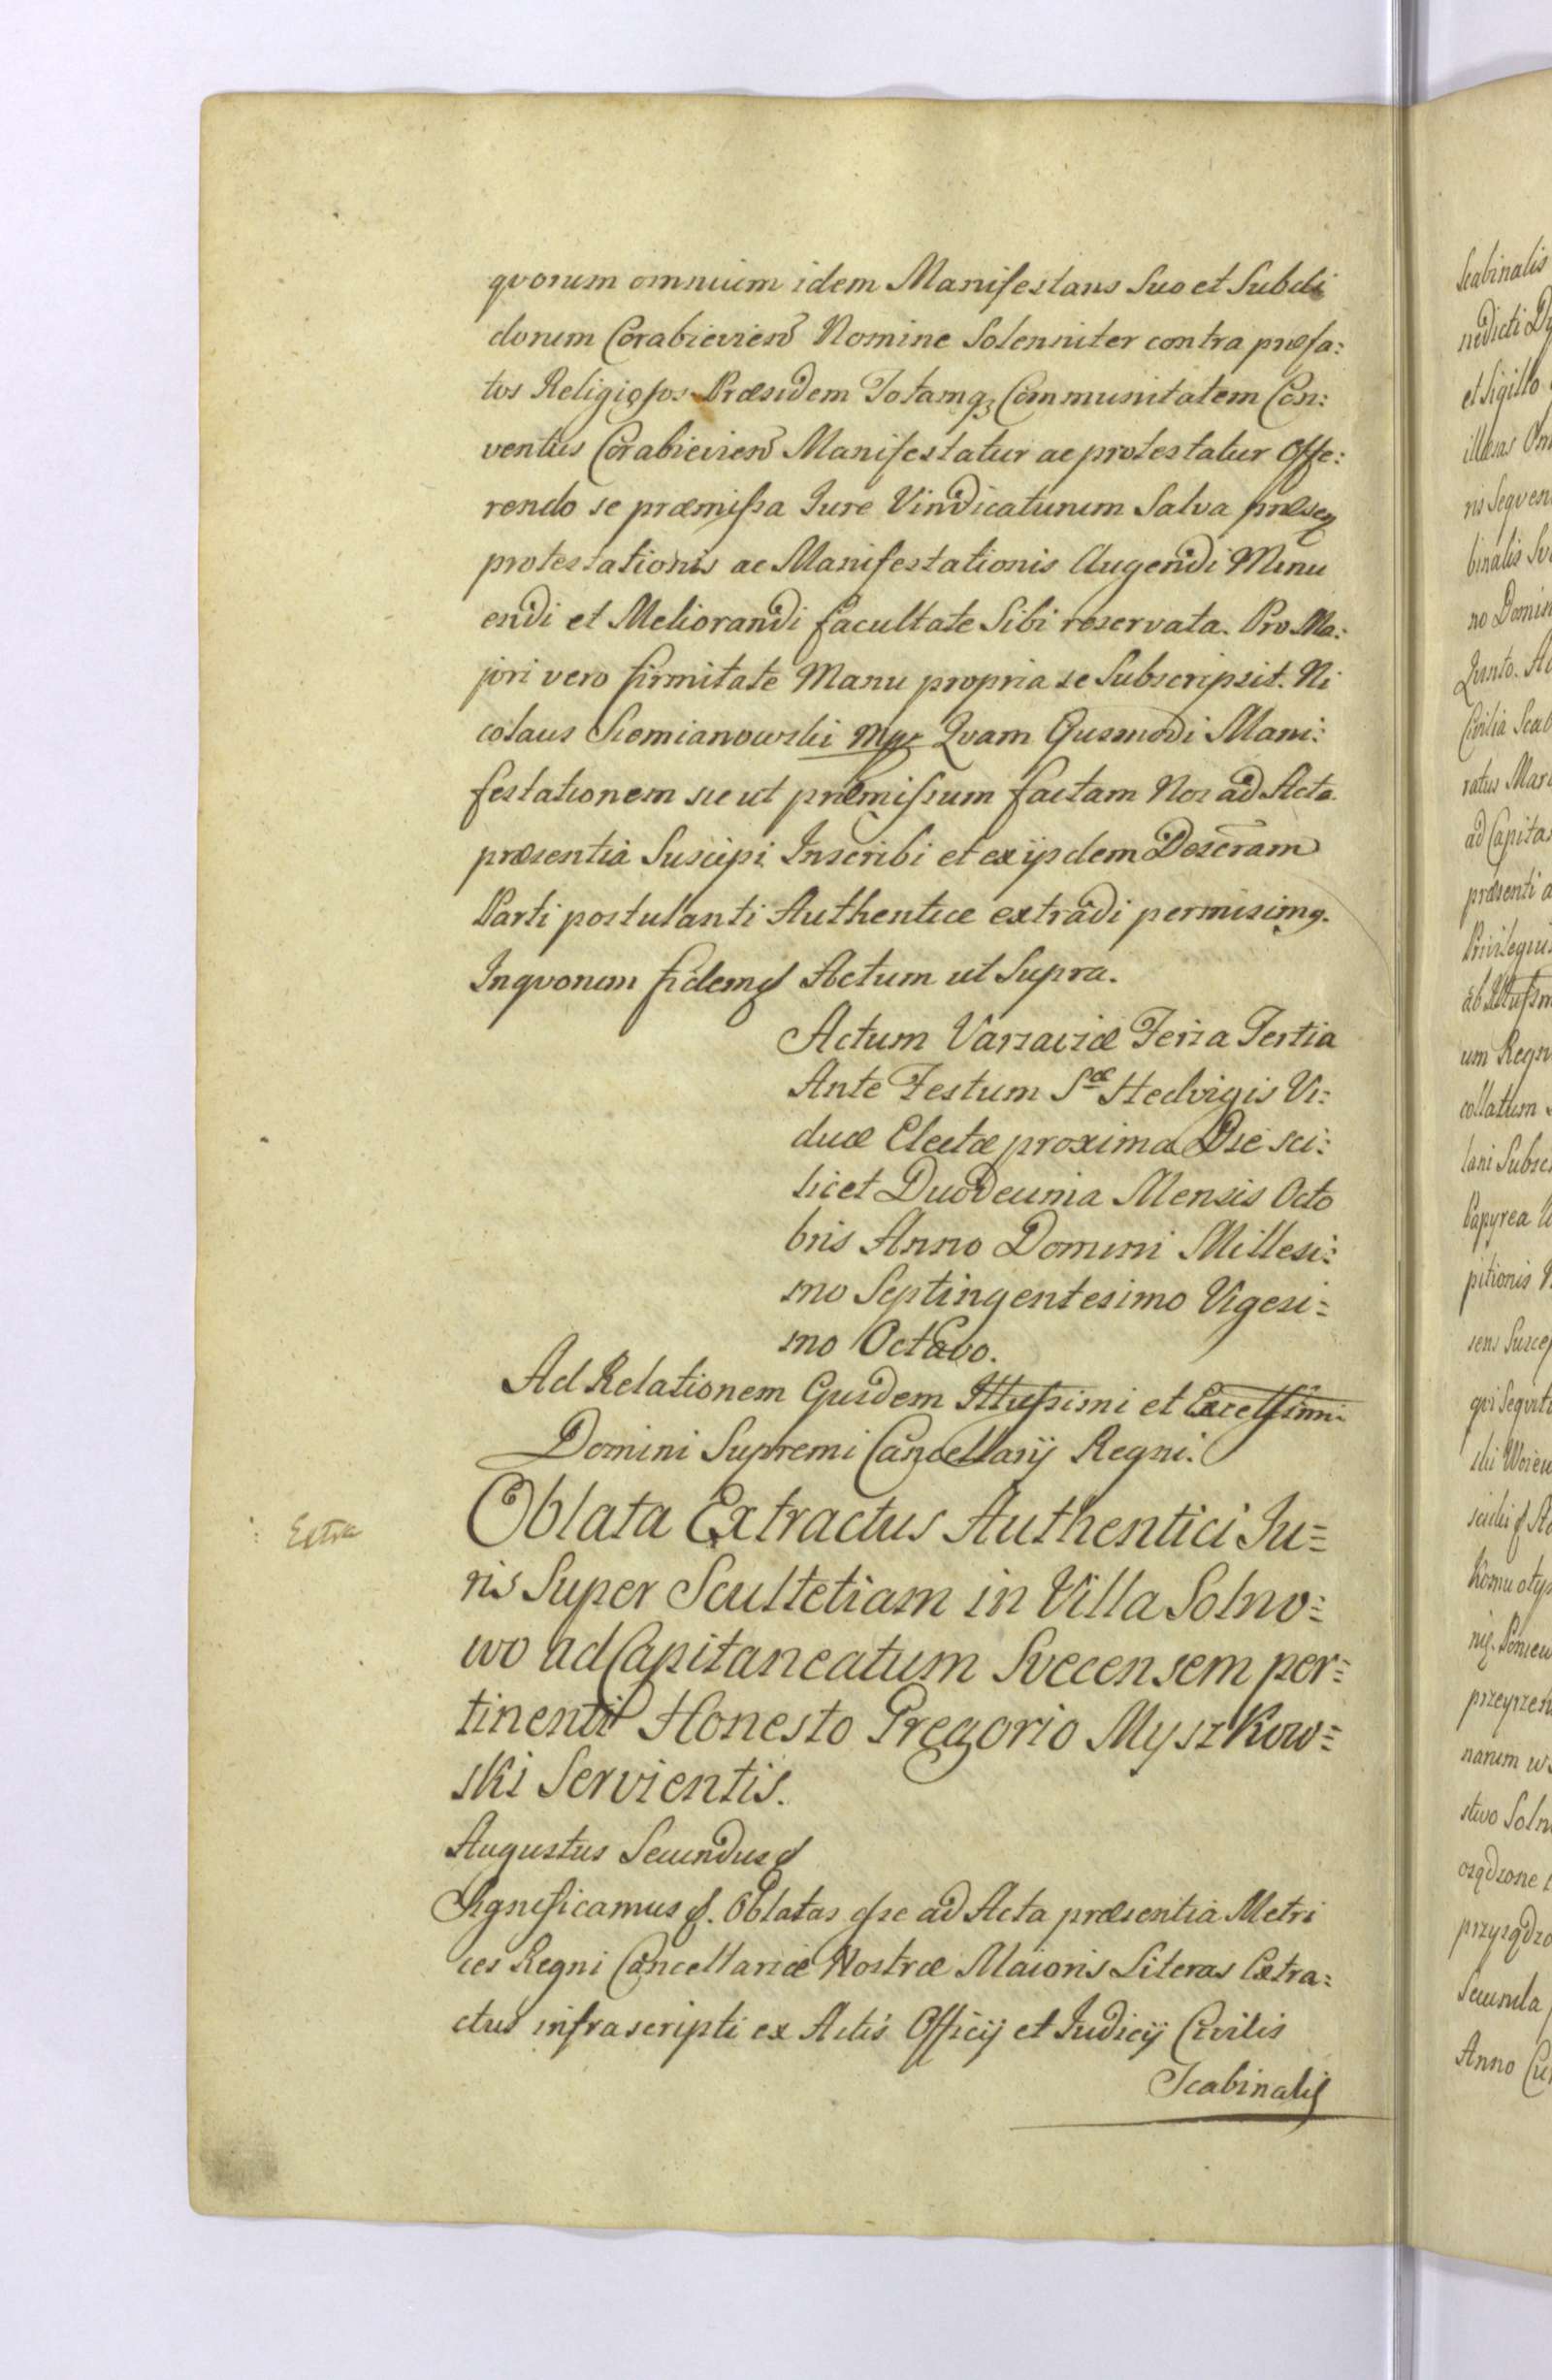 quorum omnium idem Manifestans Suo et Subdi
dorum Corabieviens Nomine Solenniter contra præfa:
tos Religiosos Præsidem Totamq; Communitatem Con:
ventus Corabieviens Manifestatur ac protestatur Offe:
rendo se præmissa Jure Vindicaturum Salva præseq
protestationis ac Manifestationis Augendi Minu
endi et Meliorandi facultate Sibi reservata. Pro Ma:
jori vero firmitate Manu propria se Subscripsit. Ni
colaus Siemianowski mpr Quam Ejusmodi Mani:
festationem sicut præmissum factam Nos ad Acta
præsentia Suscipi Inscribi et ex ijsdem Descrām
Parti postulanti Authentice extradi permisimq.
In quorum fidem Actum ut Supra.
Actum Varsaviæ Feria Tertia
Ante Festum Sæ Hedvigis Vi:
duæ Electæ proxima Die sci:
licet Duodecima Mensis Octo
bris Anno Domini Millesi:
mo Septingentesimo Vigesi=
mo Octavo.
Ad Relationem Ejusdem Illussimi et Excellsimi
Domini Supremi Cancellarij Regni.
Extra
Oblata Extractus Authentici Ju=
ris Super Scultetiam in Villa Solno=
wo ad Capitaneatum Svecensem per=
tinenti Honesto Gregorio Myszkow=
ski Servientis.
Augustus Secundus
Significamus. Oblatas esse ad Acta præsentia Metri
ces Regni Cancellariæ Nostræ Maioris Literas Extra:
ctus infrascripti ex Actis Officij et Judicij Civilis
Scabinalis
Scabinalis
et Sigillo
illæsas
no Domin
ad Capita
præsenti
um Regn
collatum
lani Subsc
Papyrea
pitionis
Anno